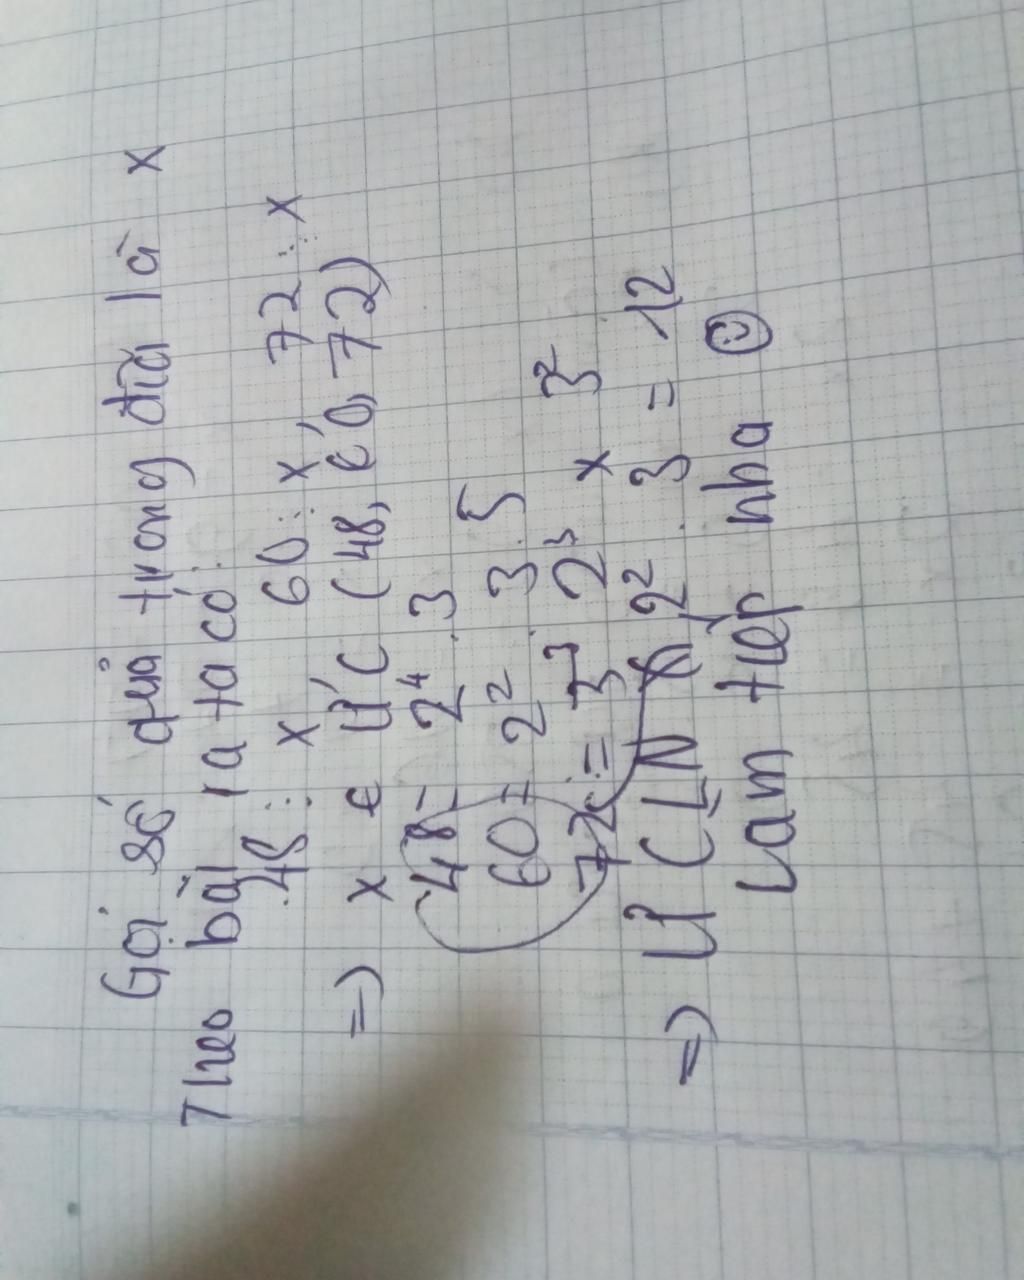 Gọi số quả trong đĩa là x
Theo bài ra ta có:
48 ⋮ x 60 ⋮ x, 72 ⋮ x
=> x ∈ ƯC (48, 60, 72)
48 = 2⁴ . 3
60 = 2² . 3 . 5
72 = 2³ x 3²
=> ƯCLN 2² . 3 = 12
Làm tiếp nha